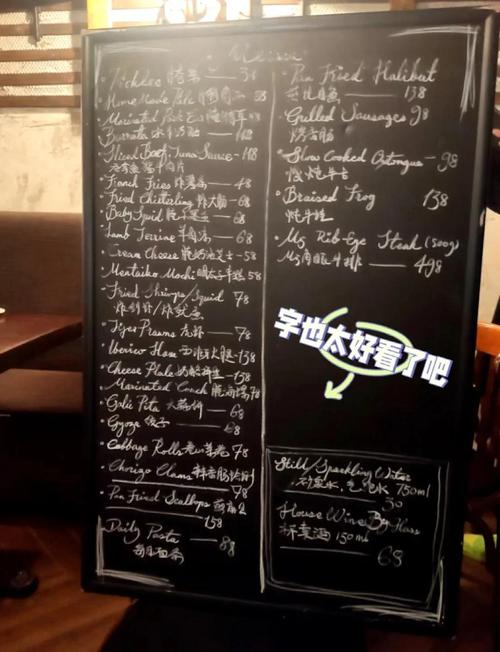 Menu
Pickles
Marinated Pork
Burrata
Sliced Beef, Tuna Sauce
French Fries 炸薯条 48
Fried Chitterling 炸大肠 68
Baby Squid 68
Lamb Terrine 羊肉冻 68
Cream Cheese 58
Mentaiko Mochi 明太子年糕 58
Fried Shrimps/Squid 78
Tiger Prawns 虎虾 78
Iberico Ham 西班牙火腿 138
Cheese Plate 奶酪拼盘 158
Marinated Conch 78
Garlic Pita 大蒜饼 68
Gyoza 饺子 68
Cabbage Rolls 78
Chorizo Clams
98
Pan Fried Scallops
158
Daily Pasta 88
每日面条
Pan Fried Halibut
138
Grilled Sausages 98
烤香肠
Slow Cooked Oxtongue 98
慢炖牛舌
Braised Frog 138
炖牛蛙
M5 Rib-Eye Steak (500g)
M5肉眼牛排 498
字也太好看了吧
Still/Sparkling Water
矿泉水,气泡水 750ml
50
House Wine By Glass
杯卖酒 150ml
68